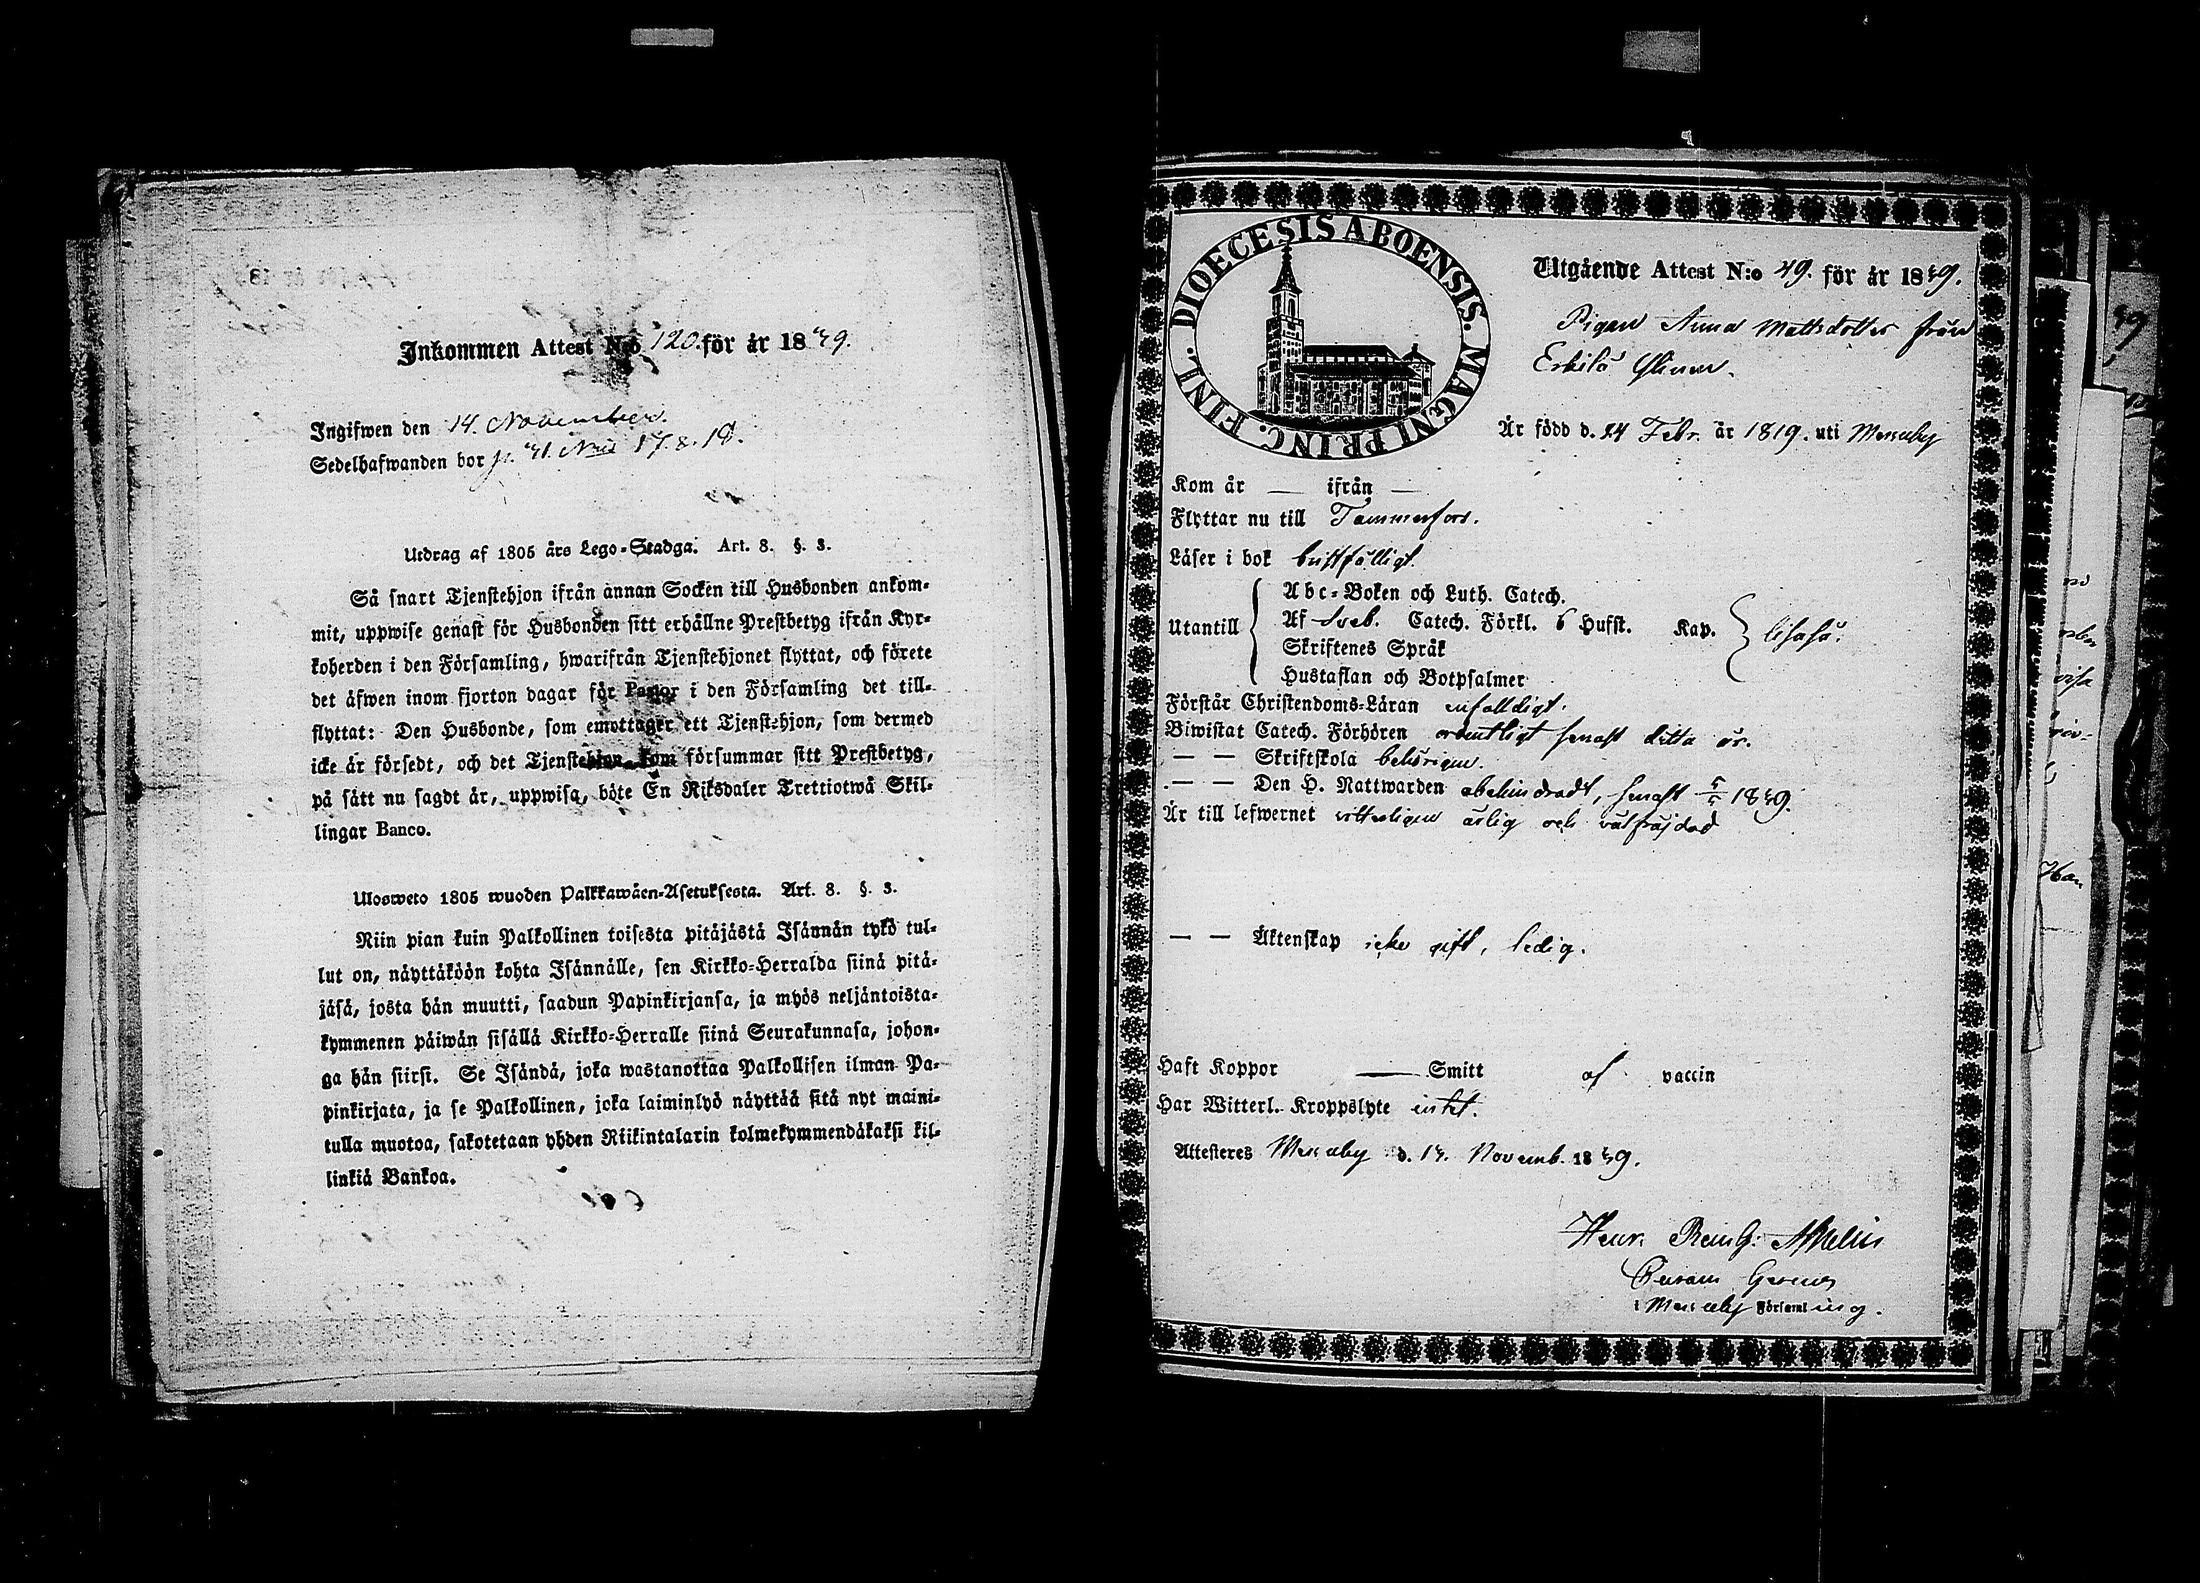 Inkommen Attest N:o 120. för år 1849.
Ingifwen den 14. November.
Sedelhafwanden bor
Utdrag af 1805 års Lego-Stadga. Art. 8. §. 3.
Så snart Tjenstehjon ifrån annan Socken till Husbonden ankom-
mit, uppwise genast för Husbonden sitt erhållne Prestbetyg ifrån Kyr-
koherden i den Församling, hwarifrån Tjenstehjonet flyttat, och förete
det äfwen inom fjorton dagar för Pastor i den Församling det till-
flyttat: Den Husbonde, som emottager ett Tjenstehjon, som dermed
icke är försedt, och det Tjenstehjon som försummar sitt Prestbetyg,
på sätt nu sagdt är, uppwisa, böte En Riksdaler Trettiotwå Skil-
lingar Banco.
Ulosweto 1805 wuoden Palkkawäen-Asetuksesta. Art. 8. §. 3.
Niin pian kuin Palkollinen toisesta pitäjästä Isännän tykö tul-
lut on, näyttäköön kohta Isännälle, sen Kirkko-Herralda siinä pitä-
jäsä, josta hän muutti, saadun Papinkirjansa, ja myös neljäntoista-
kymmenen päiwän sisällä Kirkko-Herralle siinä Seurakunnasa, johon-
ga hän siirsi. Se Isändä, joka wastanottaa Palkollisen ilman Pa-
pinkirjata, ja se Palkollinen, joka laiminlyö näyttää sitä nyt maini-
tulla muotoa, sakotetaan yhden Riikintalarin kolmekymmendäkaksi kil-
linkiä Bankoa.
DIOECESIS ABOENSIS. MAGNI PRINC. FINL.
Utgående Attest N:o 49. för år 1849.
Pigan Anna Mattsdotter från
Erkilä
Är född d. 24 Febr. år 1819. uti Messuby
Kom år — ifrån —
Flyttar nu till Tammerfors.
Läser i bok bristfälligt.
Utantill
Abc-Boken och Luth. Catech.
Af Sveb. Catech. Förkl. 6 Hufst. Kap.
Skriftenes Språk
Hustaflan och Botpsalmer
likaså.
Förstår Christendoms-Läran enfaldigt.
Biwistat Catech. Förhören ordentligt senast detta år.
— — Skriftskola behörigen.
— — Den H. Nattwarden obehindradt, senast 5/5 1849.
Är till lefwernet vitterligen ärlig och välfräjdad
— — Äktenskap icke gift, ledig.
Haft Koppor — Smitt af vaccin
Har Witterl. Kroppslyte intet.
Attesteras Messuby d. 14. Novemb. 1849.
Henr. Reinh.
i Messuby Församling.